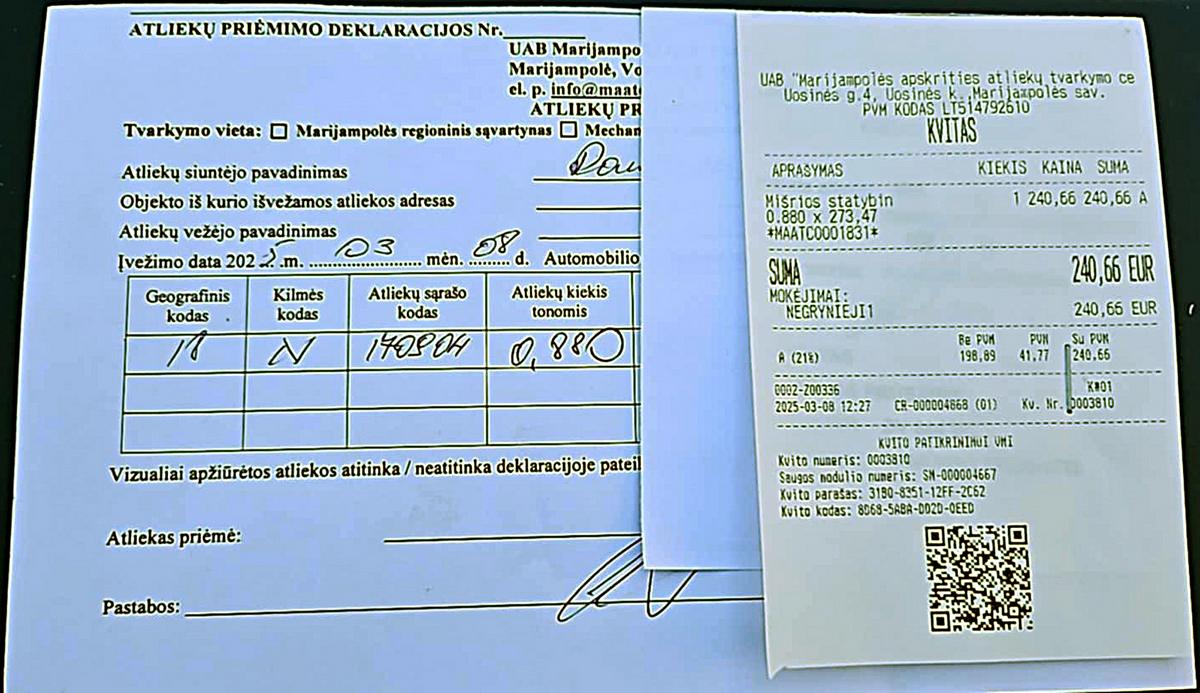 ATLIEKŲ PRIĖMIMO DEKLARACIJOS Nr.
UAB Marijampo
Marijampolė, Vo
el. p. info@maat
ATLIEKŲ PR
Tvarkymo vieta: ☐ Marijampolės regioninis sąvartynas ☐ Mechan
Atliekų siuntėjo pavadinimas
Objekto iš kurio išvežamos atliekos adresas
Atliekų vežėjo pavadinimas
Įvežimo data 2025 m. 03 mėn. 08 d. Automobilio
Geografinis kodas Kilmės kodas Atliekų sąrašo kodas Atliekų kiekis tonomis
18 N 170904 0,880
Vizualiai apžiūrėtos atliekos atitinka / neatitinka deklaracijoje pateik
Atliekas priėmė:
Pastabos:
UAB "Marijampolės apskrities atliekų tvarkymo ce
Uosinės g.4, Uosinės k., Marijampolės sav.
PVM KODAS LT514792610
KVITAS
APRAŠYMAS KIEKIS KAINA SUMA
Mišrios statybin 1 240,66 240,66 A
0.880 x 273,47
*MAATC0001831*
SUMA 240,66 EUR
MOKĖJIMAI:
NEGRYNIEJI1 240,66 EUR
Be PVM PVM Su PVM
A (21%) 198,89 41,77 240,66
0002-Z00336 K#01
2025-03-08 12:27 CR-000004668 (01) Kv. Nr. 0003810
KVITO PATIKRINIMUI VMI
Kvito numeris: 0003810
Saugos modulio numeris: SM-000004667
Kvito parašas: 31B0-8351-12FF-2C62
Kvito kodas: 8D68-5ABA-DD2D-0EED